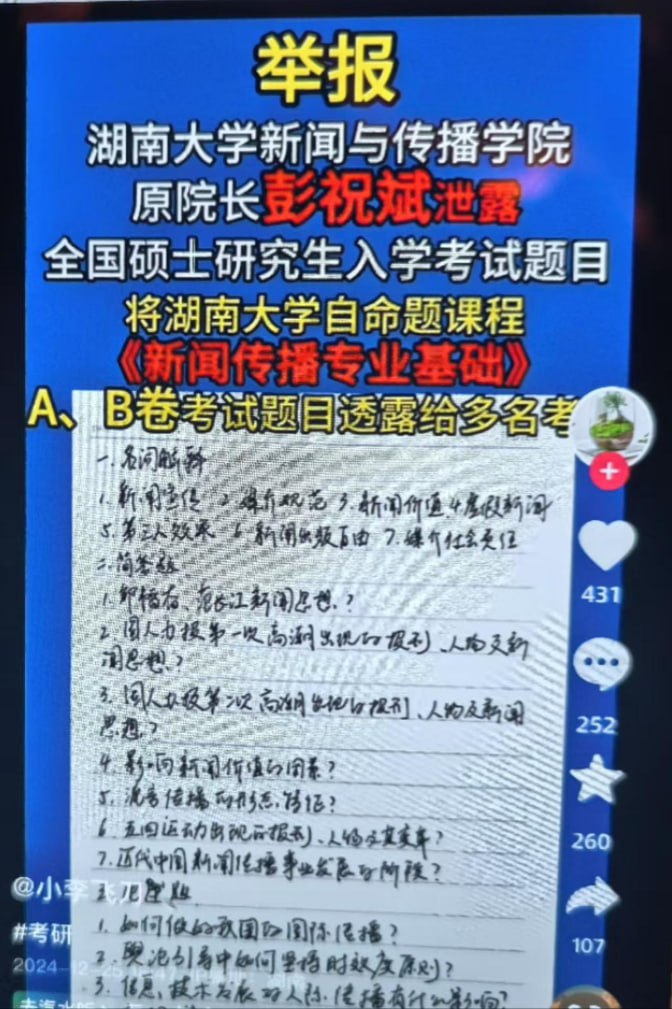 举报
湖南大学新闻与传播学院
原院长彭祝斌泄露
全国硕士研究生入学考试题目
将湖南大学自命题课程
《新闻传播专业基础》
A、B卷考试题目透露给多名考
一.名词解释
1.新闻宣传 2.媒介规范 3.新闻价值 4.虚假新闻
5.第三人效果 6.新闻出版自由 7.媒介社会责任
二.简答题
1.邹韬奋、范长江新闻思想.?
2.国人办报第一次高潮出现的报刊、人物及新
闻思想?
3.国人办报第二次高潮出现的报刊、人物及新闻
思想?
4.影响新闻价值的因素?
5.流言传播的形态,特征?
6.五四运动出现的报刊、人物及其变革?
7.近代中国新闻传播事业发展的阶段?
1.如何做好我国的国际传播?
2.舆论引导中如何坚持时效度原则?
3.信息,技术发展对人际传播有什么影响?
431
252
260
107
@小李飞刀
#考研
2024-12-25